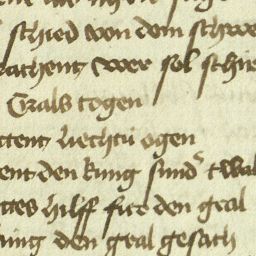 schied von dem schwe
achent wer sol schie
Grals togen
ten liechtu ogen
ent den kung sund twal
ttes hilff für den gral
ung den gral gesach